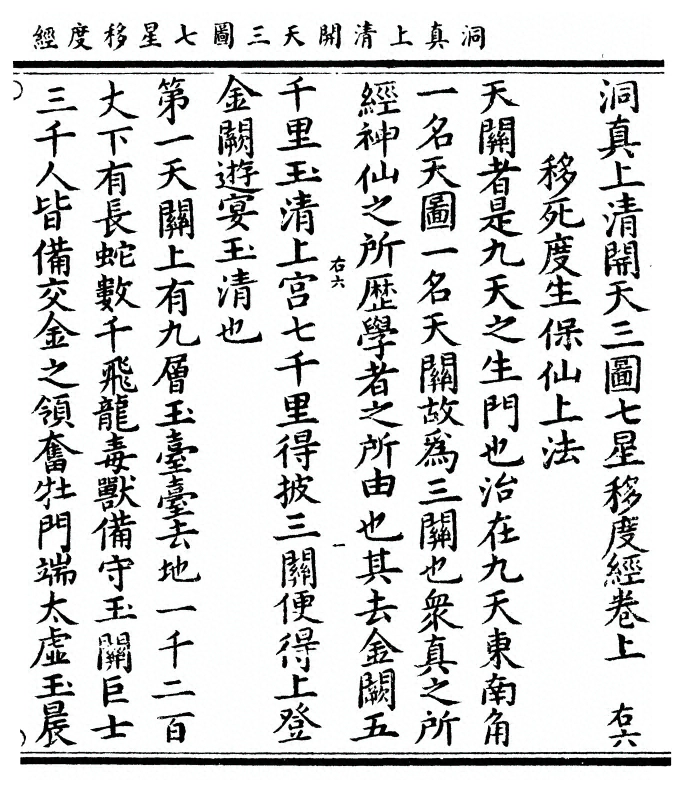 洞真上清開天三圖七星移度經
洞真上清開天三圖七星移度經卷上 右六
移死度生保仙上法
天關者是九天之生門也治在九天東南角
一名天圖一名天關故爲三關也衆真之所
經神仙之所歷學者之所由也其去金闕五
右六 一
千里玉清上宮七千里得披三關便得上登
金闕遊宴玉清也
第一天關上有九層玉臺臺去地一千二百
丈下有長蛇數千飛龍毒獸備守玉關巨士
三千人皆備交金之領奮牡門端太虛玉晨